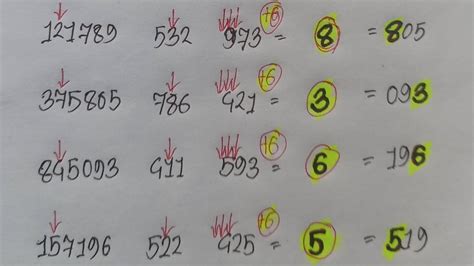 121789 532 973 +6 = 8 = 805
375805 786 421 +6 = 3 = 093
845093 411 593 +6 = 6 = 196
157196 522 425 +6 = 5 = 519